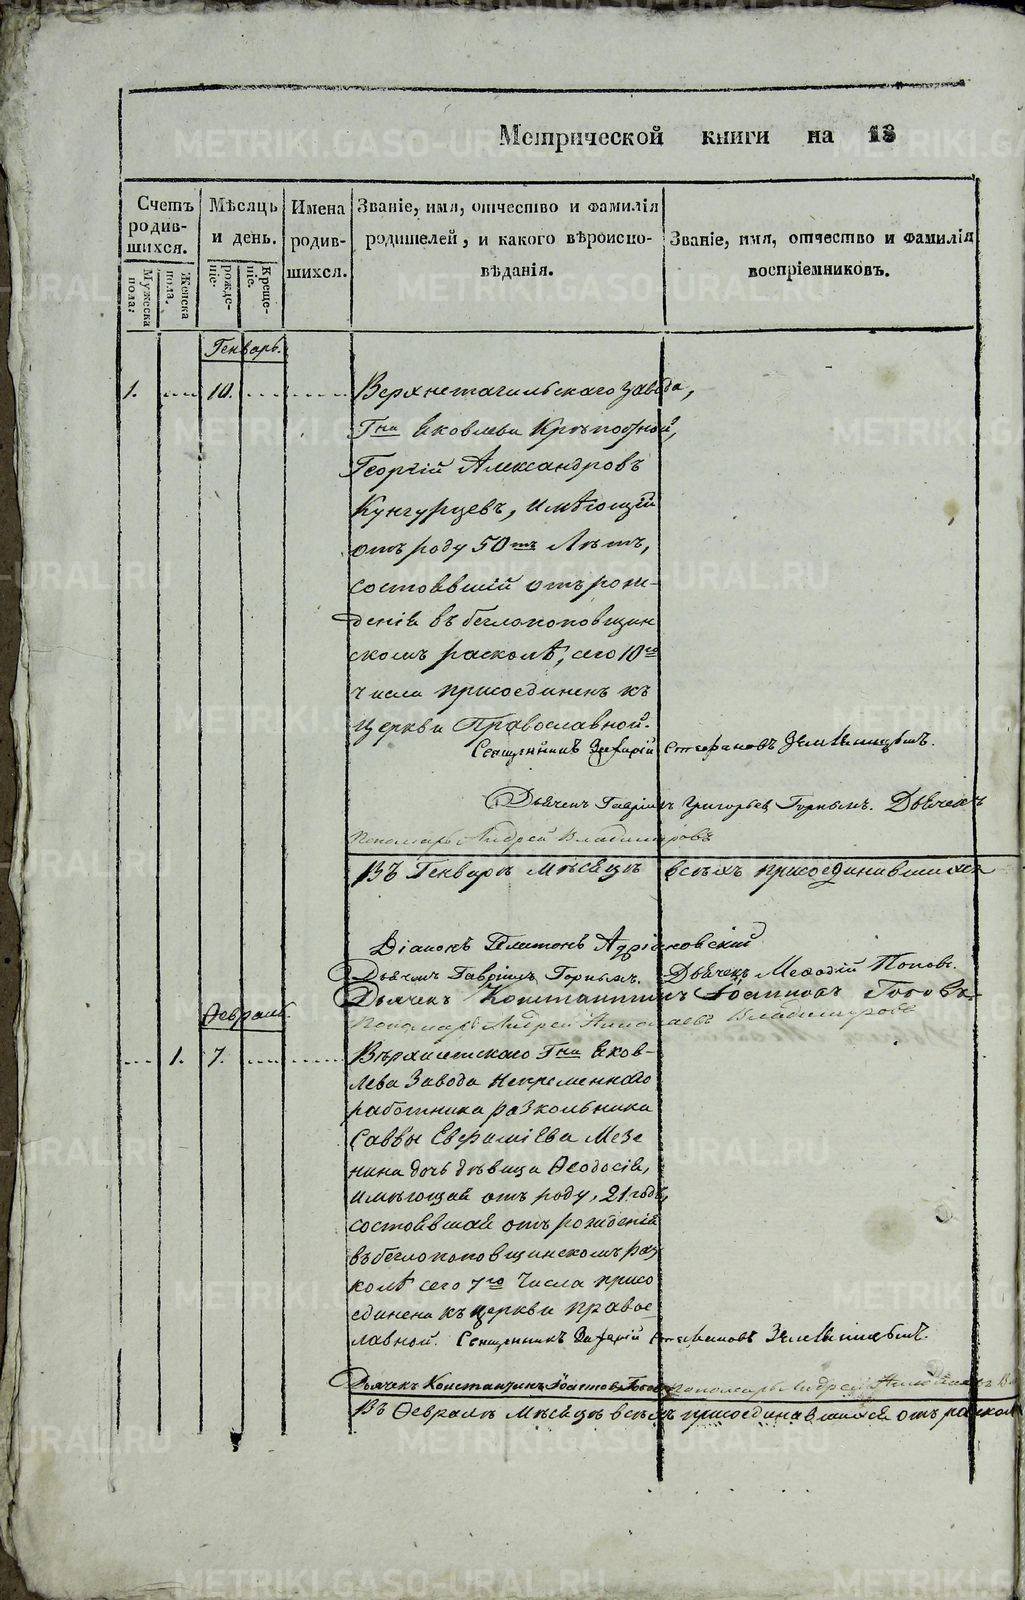 Метрической книги на 18
Счетъ родив-шихся.
Мужеска пола:
Женска пола.
Мѣсяцъ и день.
рожде-ніе:
креще-ніе.
Имена родив-шихся.
Званіе, имя, отчество и фамилія
родителей, и какого вѣроиспо-
вѣданія.
Званіе, имя, отчество и фамилія
воспріемниковъ.
Генварь.
1. 10. Верхнетагильскаго завода,
Гна Яковлева Крѣпостной,
Георгій Александровъ
Кунгурцевъ, имѣющій
отъ роду 50тъ Лѣтъ,
состоявшій отъ рож-
денія въ беглопоповщин
скомъ расколѣ, сего 10го
числа присоединенъ къ
Церкви Православной.
Священникъ Захарій Стефановъ Земляницынъ.
Дьячекъ Гавріилъ Григорьев Горныхъ. Дьячекъ
Пономарь Андрей Владимировъ
Въ Генварѣ мѣсяцѣ всѣхъ присоединившихся
Діаконъ Адріановскій
Дьячекъ Гавріилъ Горныхъ. Дьячекъ Меѳодій Поповъ.
Дьячекъ Константинъ Іоанновъ
Пономарь Андрей Николаевъ Владимировъ
Февраль.
1. 7. Верхнетскаго Гна Яков-
лева Завода Непременнаго
работника раскольника
Саввы Евфиміева Мезе
нина дочь дѣвица Ѳеодосія,
имѣющая отъ роду, 21 годъ,
состоявшая отъ рожденія
въ беглопоповщинскомъ рас
колѣ сего 7го числа присо
единена къ церкви право
славной. Священникъ Захарій Стефановъ Земляницынъ.
Дьячекъ Константинъ Іоанновъ Пономарь Андрей Николаевъ
Въ Февралѣ мѣсяцѣ всѣхъ присоединившихся отъ раскол
METRIKI.GASO-URAL.RU